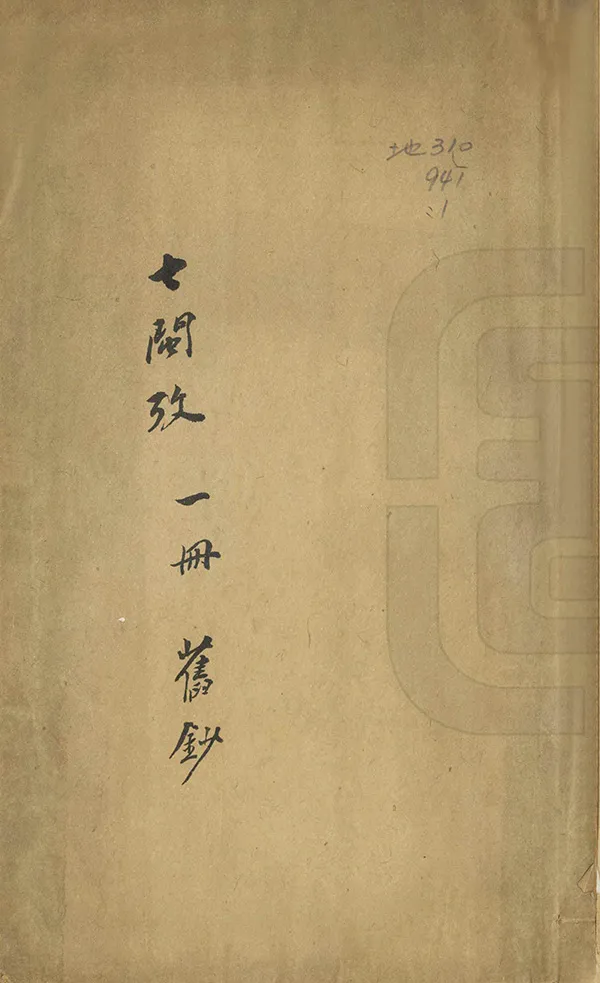 地310
941
:1
七閩攷 一冊 舊鈔